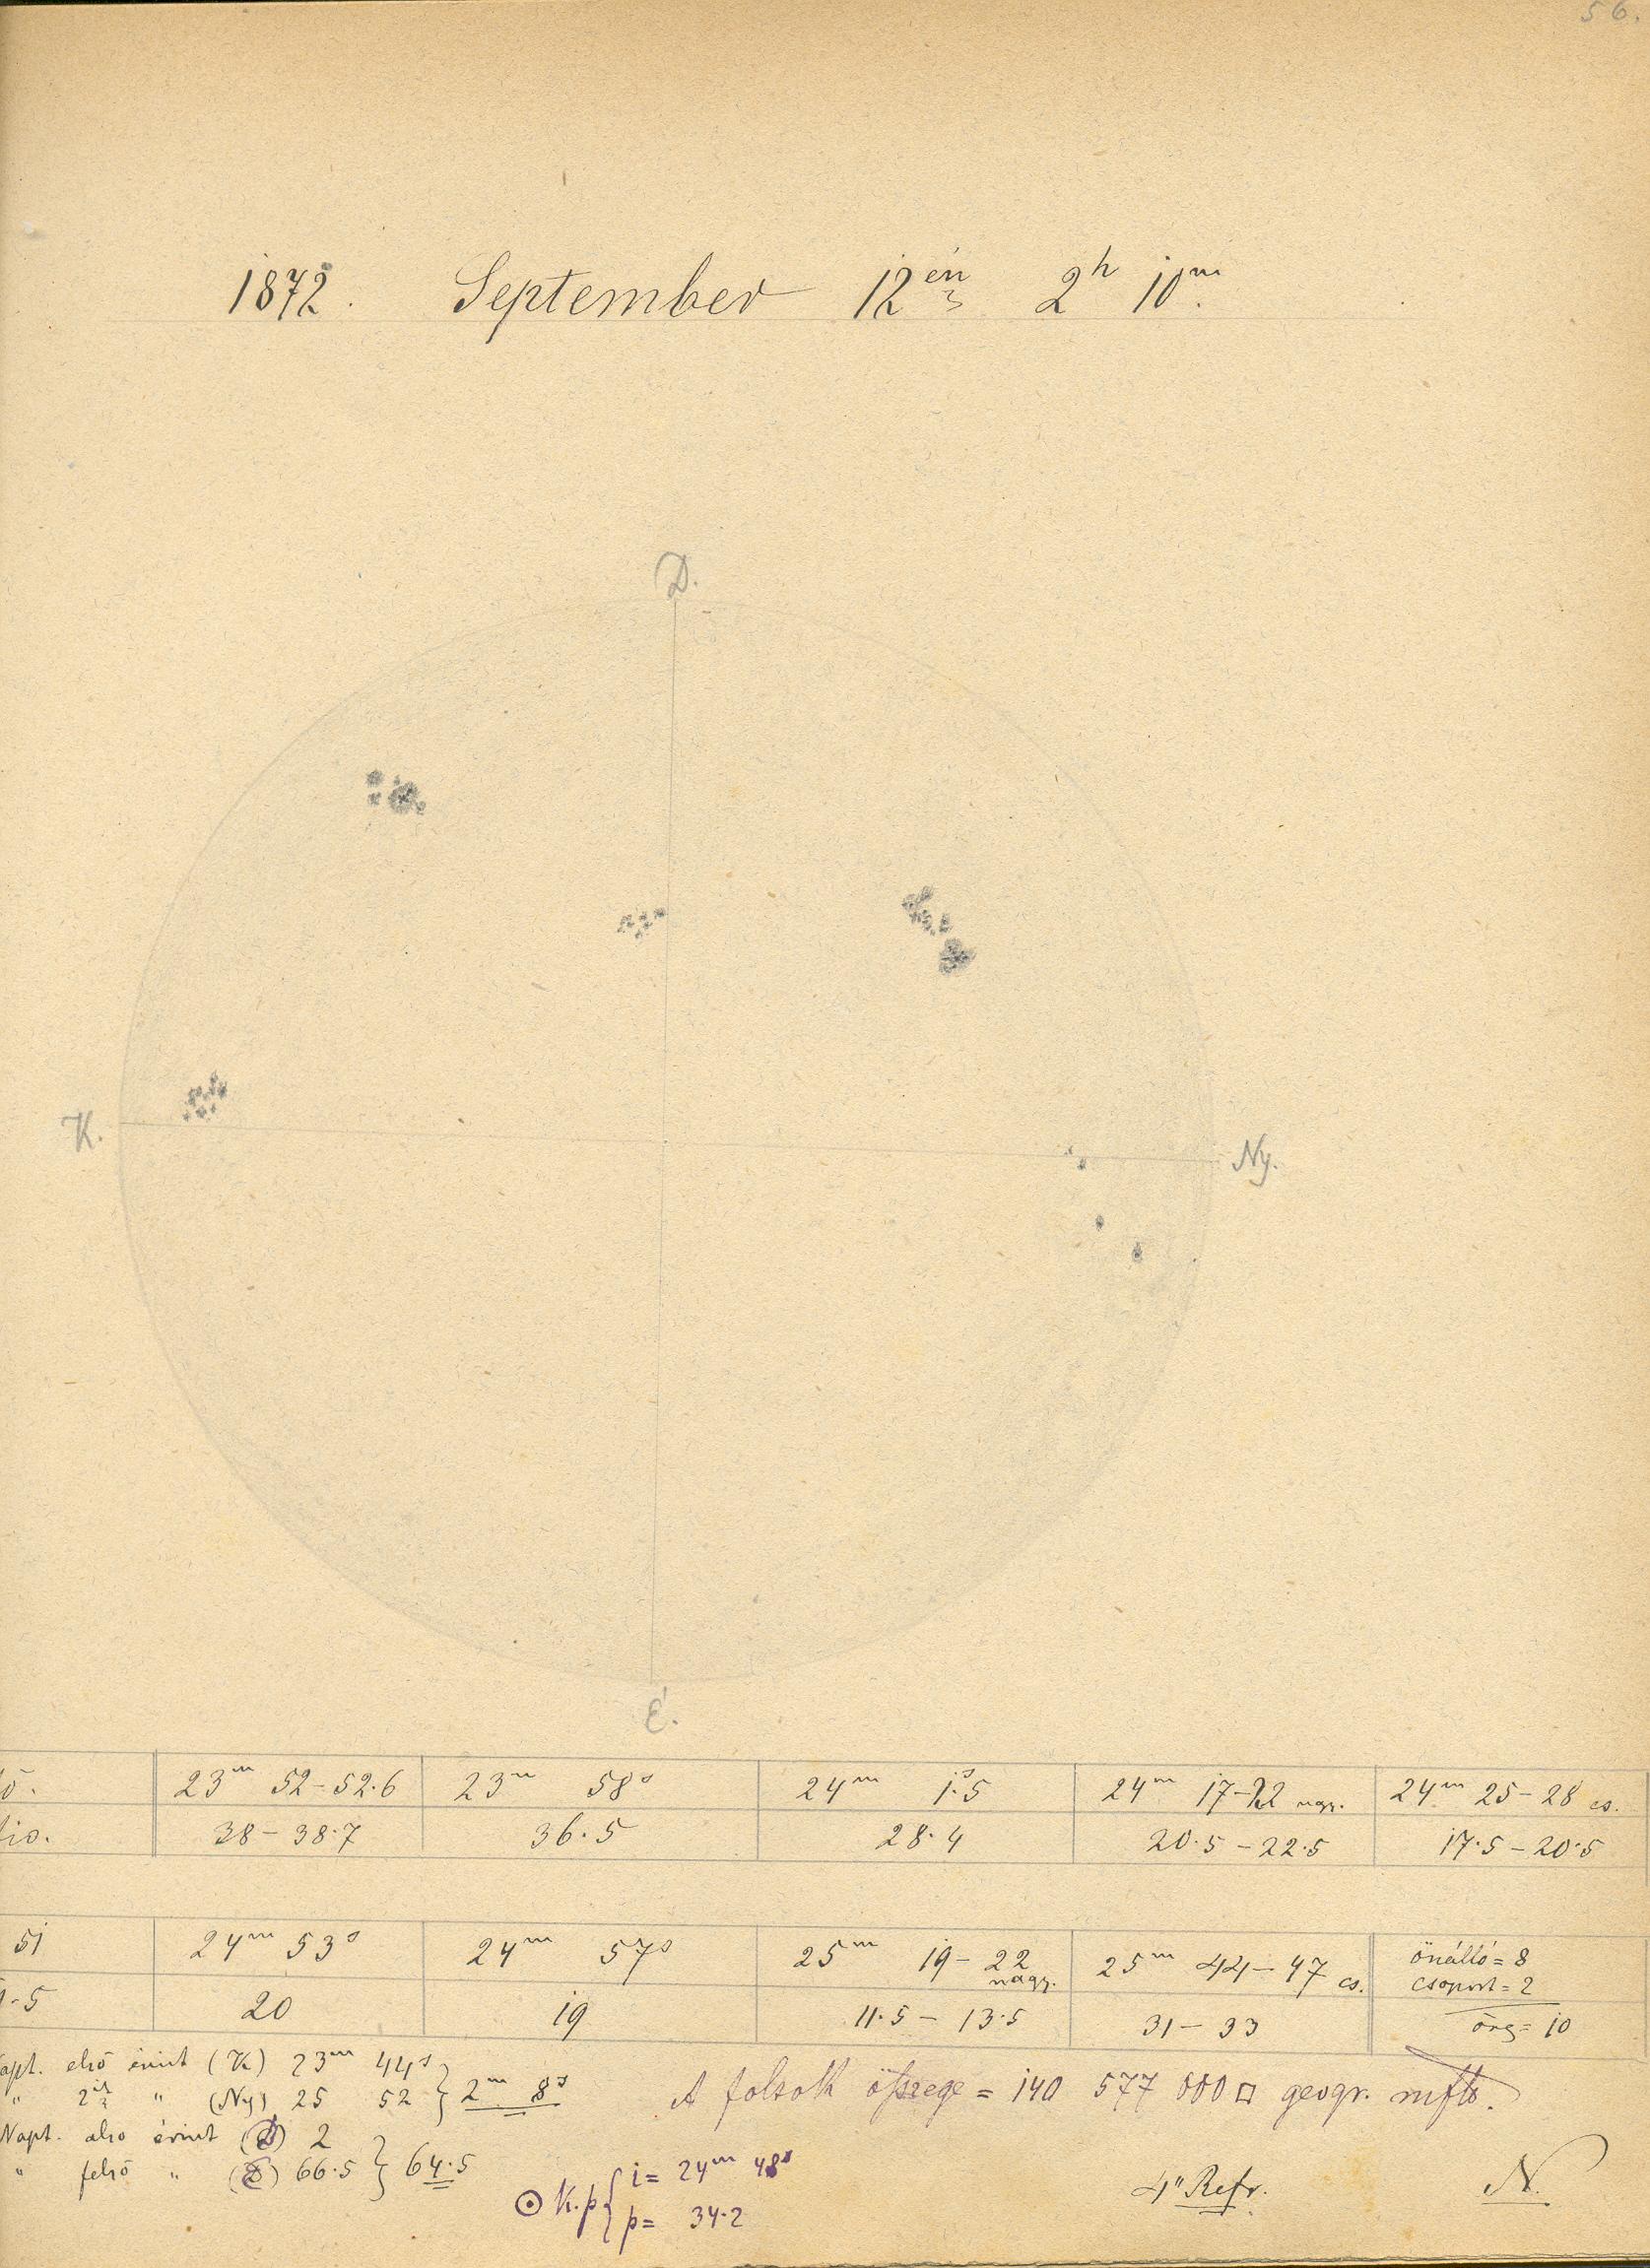 56.
1872. September 12én 2h 10m.
D.
K.
Ny.
É.
ő. 23m 52-52.6 23m 58s 24m 1.s5 24m 17-22 nagy. 24m 25-28 cs.
tio. 38-38.7 36.5 28.4 20.5-22.5 17.5-20.5
51 24m 53s 24m 57s 25m 19-22 nagy. 25m 44-47 cs. önálló=8
csoport=2
.5 20 19 11.5-13.5 31-33 örg=10
apt. első érint (K) 23m 44s
" 2ik " (Ny) 25 52 } 2m 8s
A foltok összege = 140 577 000 □ geogr. mftö.
Napt. alsó érint (D) 2
" felső " (É) 66.5 } 64.5
☉ K.p { i= 24m 48s
p= 34.2
4" Refr.
N.